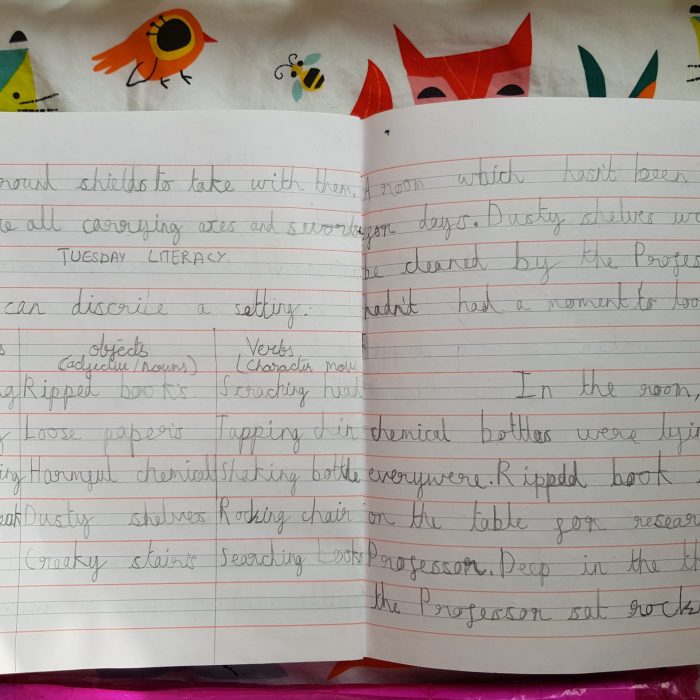 round shields to take with them.
all carrying axes and swords
TUESDAY LITERACY.
can discribe a setting.
objects
Verbs
(adjective/nouns)
(character mov
Ripped book's
Scraching head
Loose paper's
Tapping chin
Harmful chemical
Shaking bottle
Dusty shelves
Rocking chair
Creaky stairs
Searching books
A room which hasn't been
for days. Dusty shelves we
be cleaned by the Profess
hadn't had a moment to loo
In the room,
chemical bottles were lyin
everywere. Ripped book
on the table for resear
Professor. Deep in the th
the Professor sat rock